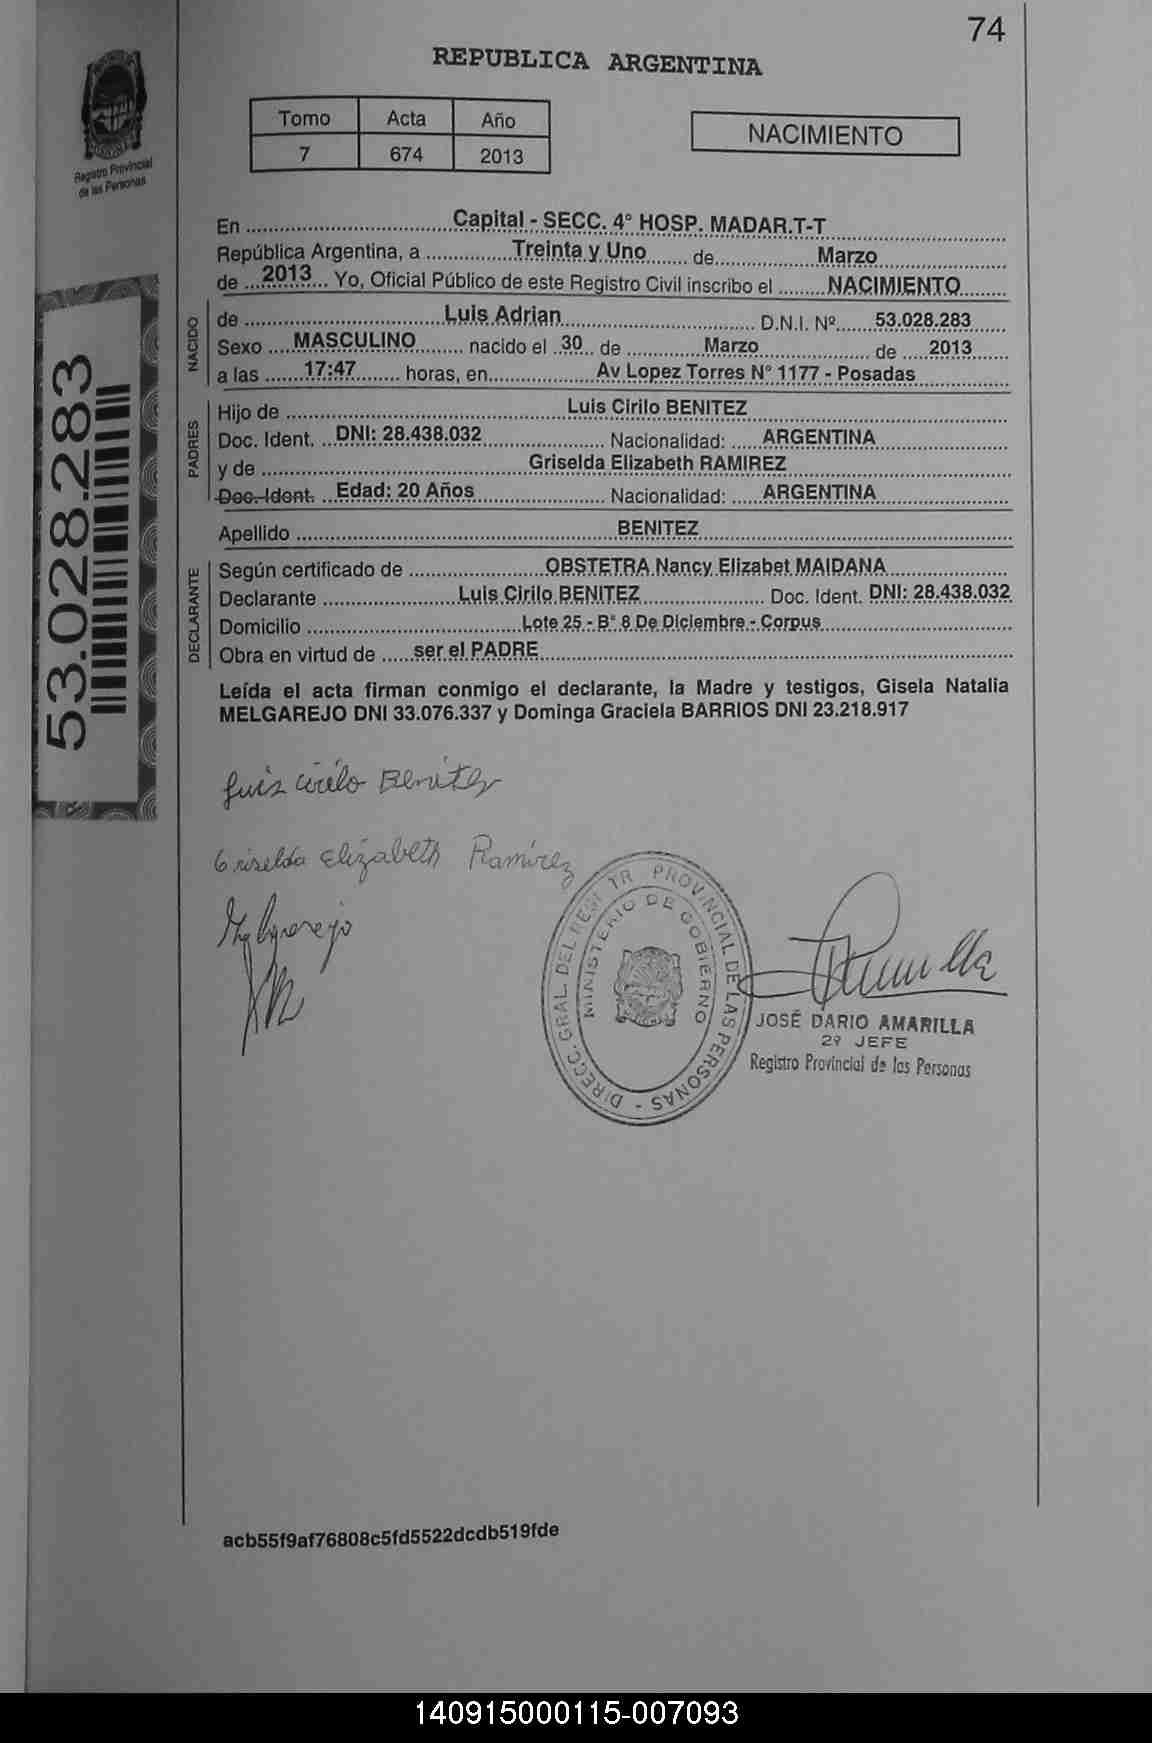 74
REPUBLICA ARGENTINA
Registro Provincial
de las Personas
Tomo Acta Año
7 674 2013
NACIMIENTO
53.028.283
En Capital - SECC. 4° HOSP. MADAR.T-T
República Argentina, a Treinta y Uno de Marzo
de 2013 Yo, Oficial Público de este Registro Civil inscribo el NACIMIENTO
NACIDO
de Luis Adrian D.N.I. Nº 53.028.283
Sexo MASCULINO nacido el 30 de Marzo de 2013
a las 17:47 horas, en Av Lopez Torres N° 1177 - Posadas
PADRES
Hijo de Luis Cirilo BENITEZ
Doc. Ident. DNI: 28.438.032 Nacionalidad: ARGENTINA
y de Griselda Elizabeth RAMIREZ
Doc. Ident. Edad: 20 Años Nacionalidad: ARGENTINA
Apellido BENITEZ
DECLARANTE
Según certificado de OBSTETRA Nancy Elizabet MAIDANA
Declarante Luis Cirilo BENITEZ Doc. Ident. DNI: 28.438.032
Domicilio Lote 25 - B° 8 De Diciembre - Corpus
Obra en virtud de ser el PADRE
Leída el acta firman conmigo el declarante, la Madre y testigos, Gisela Natalia
MELGAREJO DNI 33.076.337 y Dominga Graciela BARRIOS DNI 23.218.917
Luis Cirilo Benitez
Griselda Elizabeth Ramirez
Melgarejo
DIRECC. GRAL. DEL REGISTR PROVINCIAL DE LAS PERSONAS -
MINISTERIO DE GOBIERNO
JOSÉ DARIO AMARILLA
2º JEFE
Registro Provincial de las Personas
acb55f9af76808c5fd5522dcdb519fde
140915000115-007093